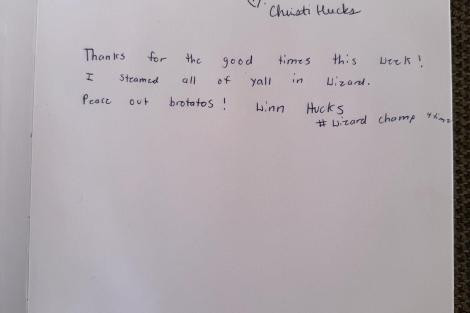 Christi Hucks
Thanks for the good times this week!
I steamed all of yall in Wizard.
Peace out brotatos! Winn Hucks
# Wizard champ